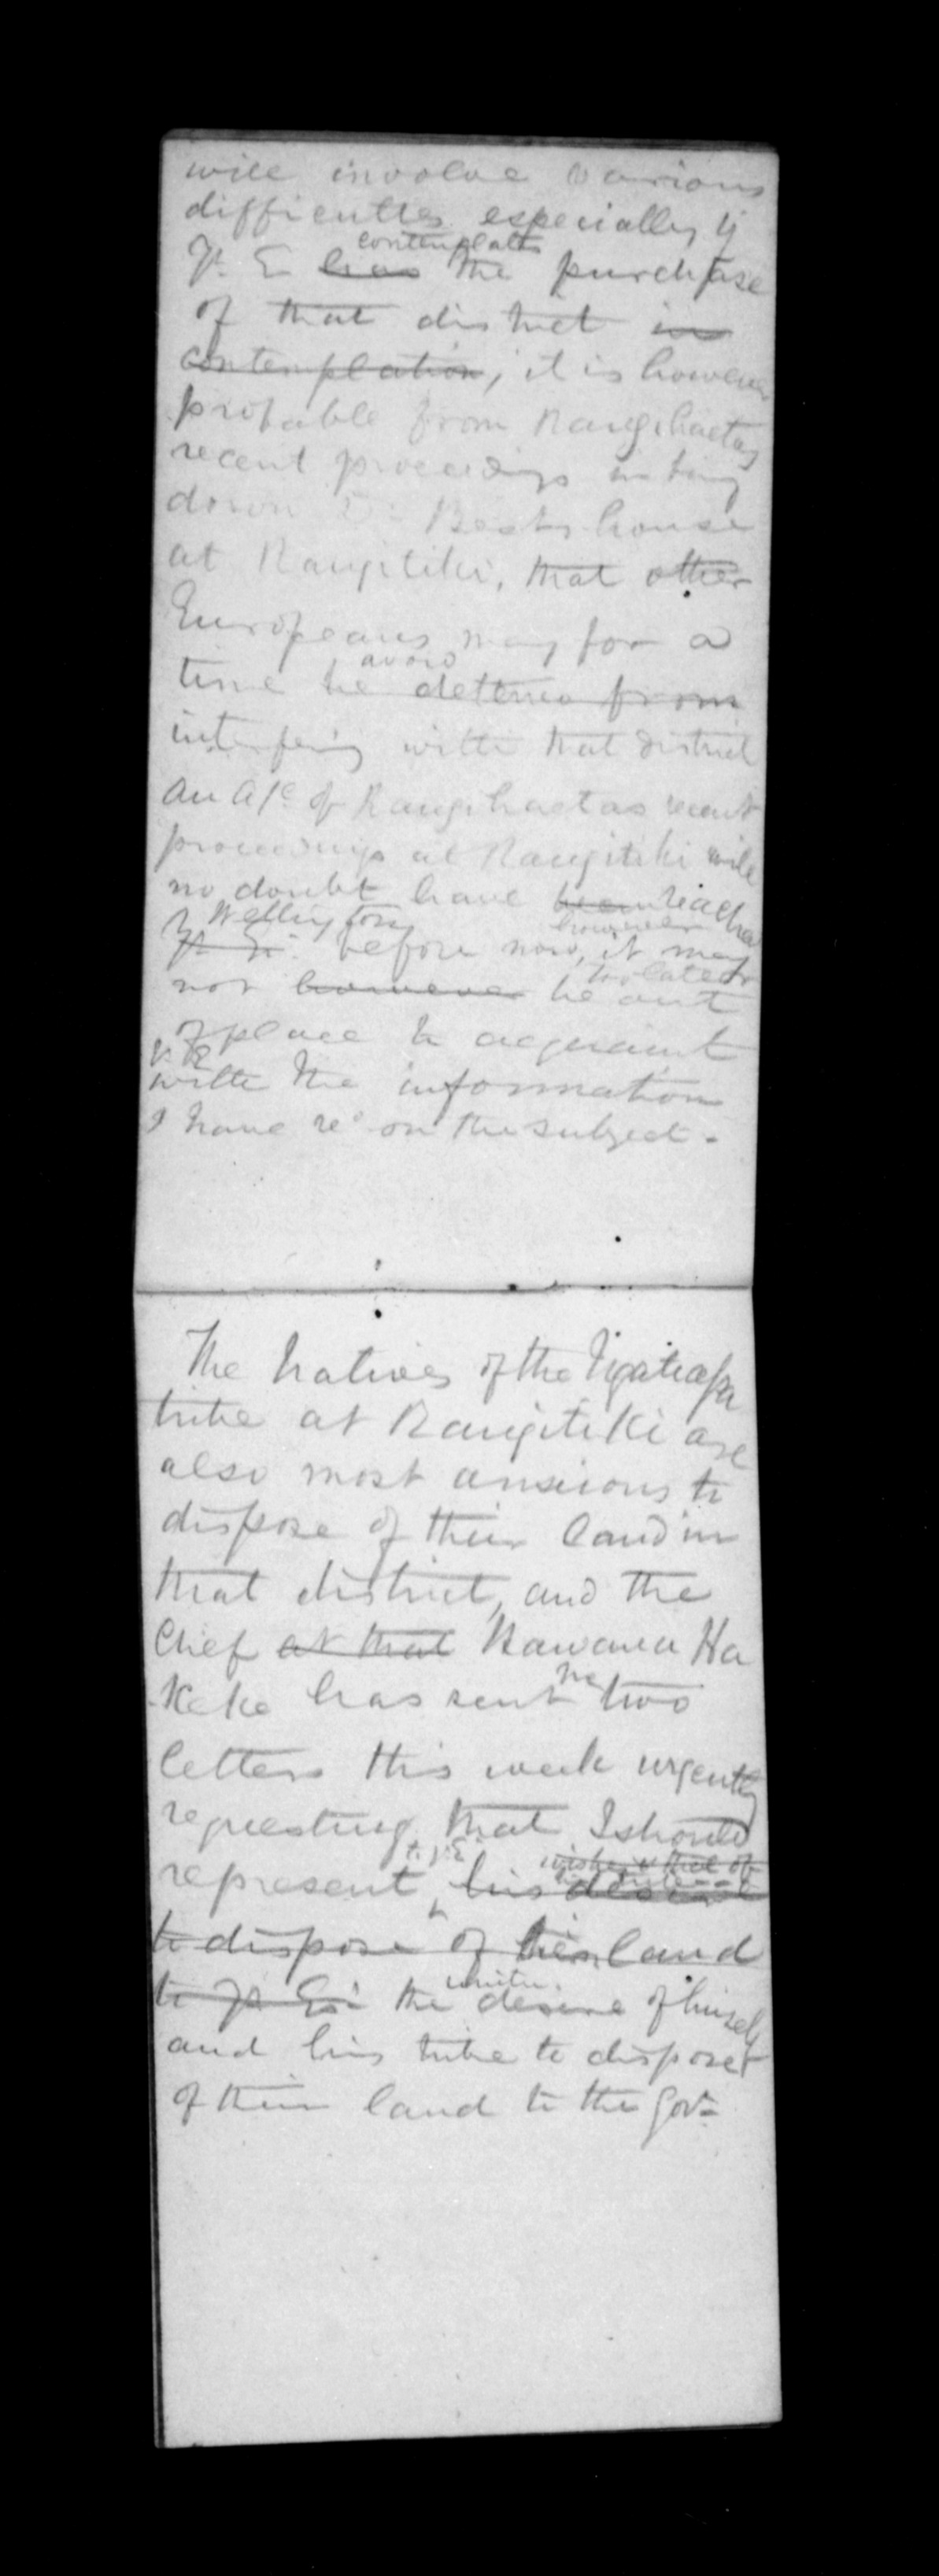 will involve various
difficulties especially if
contemplates
H. E ~~has~~ the purchase
of that district ~~in~~
~~contemplation~~, it is however
probable from Rangihaetas
recent proceedings in
down Dr Best's house
at Rangitiki, that other
Europeans may for a
avoid
time ~~be deterred from~~
interfering with that district
An a/c of Rangihaetas recent
proceedings at Rangitiki will
no doubt have ~~been~~ reached
Wellington however
~~H. E.~~ before now, it may
not ~~however~~ be out
of place to acquaint
H. E
with the information
I have re'd on the subject -
The Natives of the Ngatiapa
tribe at Rangitiki are
also most anxious to
dispose of their land in
that district, and the
Chief ~~at that~~ Kawana Ha
keke has sent me two
letters this week urgently
requesting that I should
to H.E. ~~wishes & that of~~
represent ~~his desire~~
~~to dispose of his land~~
~~to H. E.~~ the united desire of himself
and his tribe to dispose
of their land to the Govt.